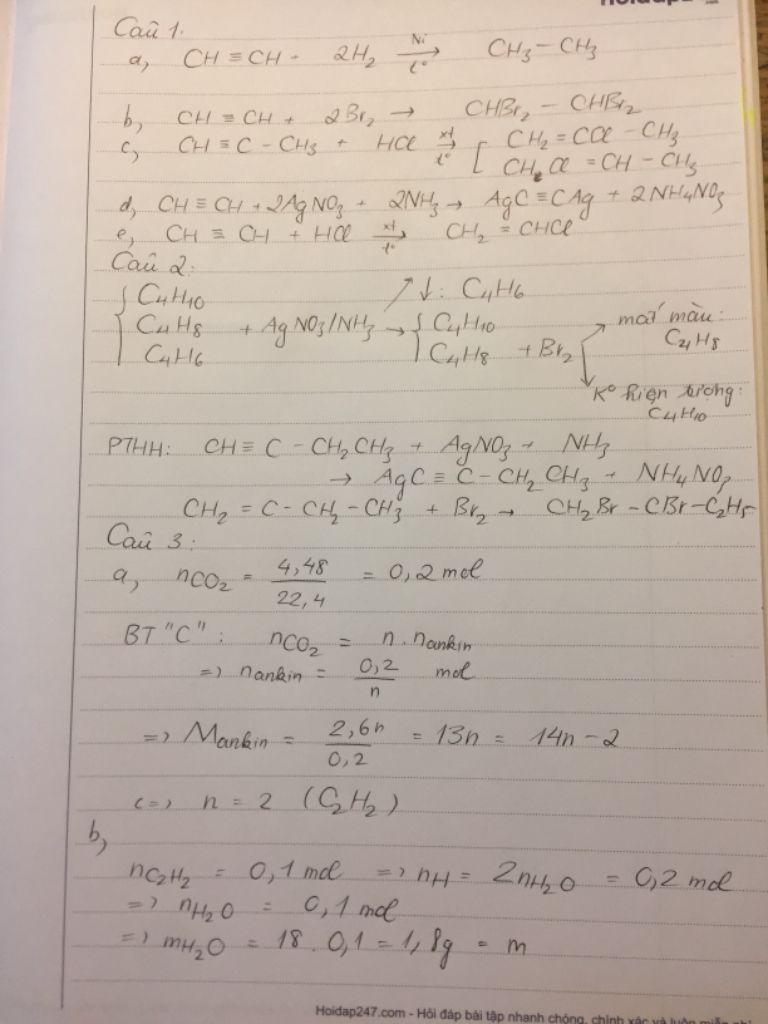 Câu 1.
a, CH ≡ CH + 2H₂ —Ni, t°→ CH₃ – CH₃
b, CH ≡ CH + 2Br₂ → CHBr₂ – CHBr₂
c, CH ≡ C – CH₃ + HCl —xt, t°→ [ CH₂ = CCl – CH₃
CH₂Cl = CH – CH₃
d, CH ≡ CH + 2AgNO₃ + 2NH₃ → AgC ≡ CAg + 2NH₄NO₃
e, CH ≡ CH + HCl —xt, t°→ CH₂ = CHCl
Câu 2:
{ C₄H₁₀ ↗ ↓: C₄H₆
C₄H₈ + AgNO₃/NH₃ → { C₄H₁₀ mất màu:
C₄H₆ C₄H₈ + Br₂ C₄H₈
K° hiện tượng:
C₄H₁₀
PTHH: CH ≡ C – CH₂CH₃ + AgNO₃ + NH₃
→ AgC ≡ C – CH₂CH₃ + NH₄NO₃
CH₂ = C – CH₂ – CH₃ + Br₂ → CH₂Br – CBr – C₂H₅
Câu 3:
a, nCO₂ = 4,48/22,4 = 0,2 mol
BT "C": nCO₂ = n . nankin
=> nankin = 0,2/n mol
=> Mankin = 2,6n/0,2 = 13n = 14n – 2
<=> n = 2 (C₂H₂)
b,
nC₂H₂ = 0,1 mol => nH = 2nH₂O = 0,2 mol
=> nH₂O = 0,1 mol
=> mH₂O = 18 . 0,1 = 1,8g = m
Hoidap247.com - Hỏi đáp bài tập nhanh chóng, chính xác và luôn miễn phí